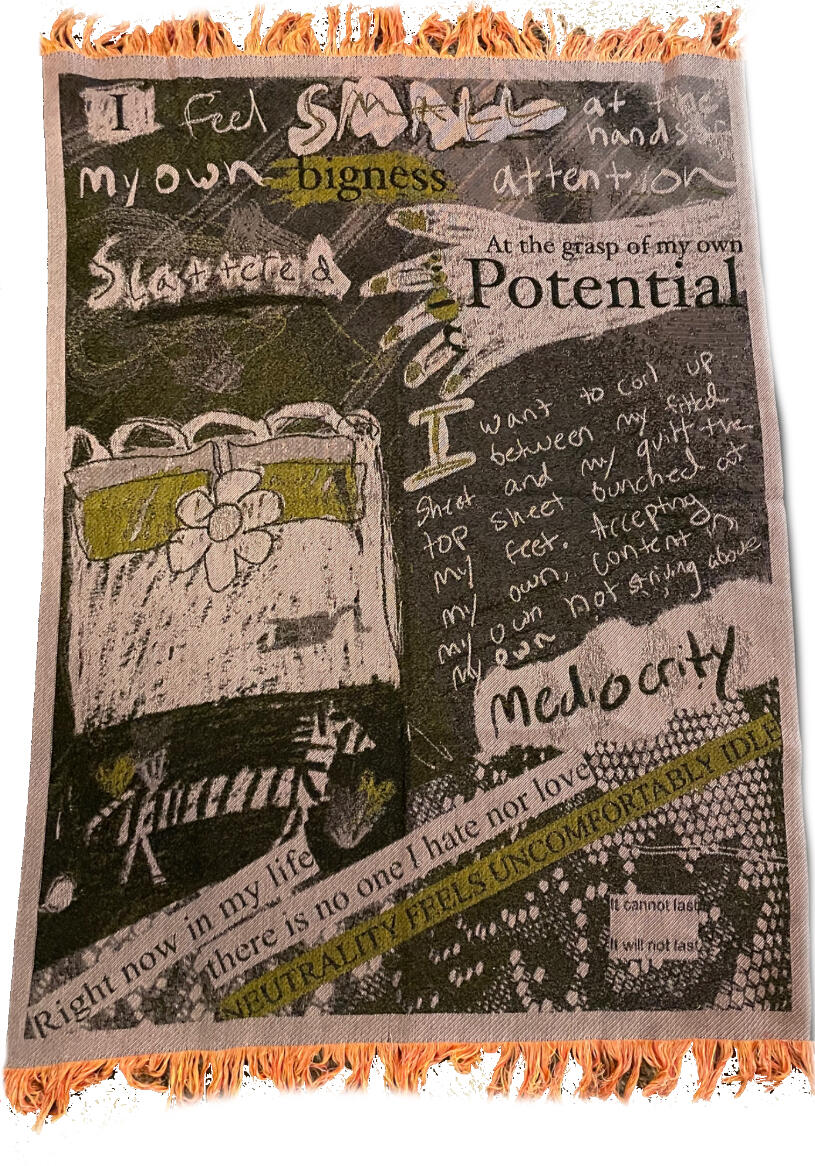 I feel SMALL at the
hands of
my own bigness attention
Slattered
At the grasp of my own
Potential
I want to coil up
between my fitted
sheet and my quilt the
top sheet bunched at
my feet. Accepting
my own, content in
my own not striving above
my own
Mediocrity
Right now in my life
there is no one I hate nor love
NEUTRALITY FEELS UNCOMFORTABLY IDLE
It cannot last
It will not last